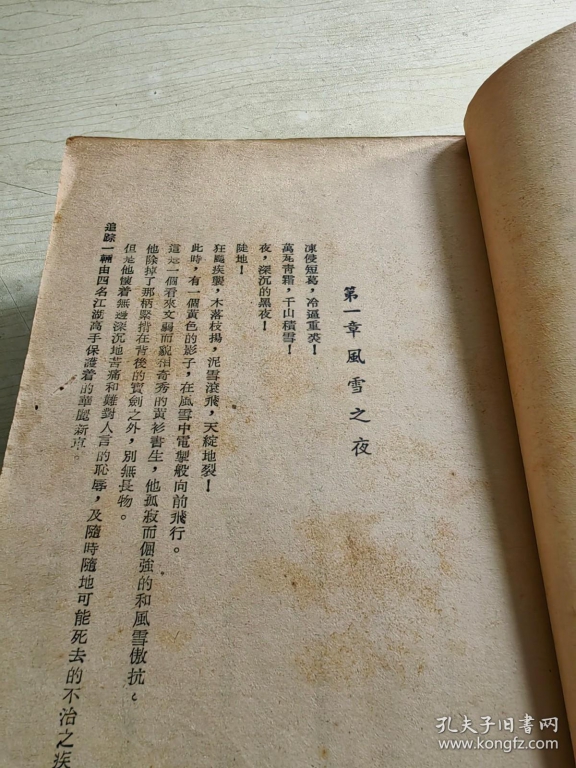 第一章風雪之夜
凍侵短葛，冷逼重裘！
萬瓦青霜，千山積雪！
夜，深沉的黑夜！
陡地！
狂飈疾襲，木落枝揚，泥雪滾飛，天綻地裂！
此時，有一個黃色的影子，在風雪中電掣般向前飛行。
這是一個看來文弱而貌相奇秀的黃衫書生，他孤寂而倔強的和風雪傲抗。
他除掉了那柄緊揹在背後的寶劍之外，別無長物。
但是他懷着無邊深沉地苦痛和難對人言的恥辱，及隨時隨地可能死去的不治之疾
追踪一輛由四名江湖高手保護着的華麗新車。
孔夫子旧书网
www.kongfz.com